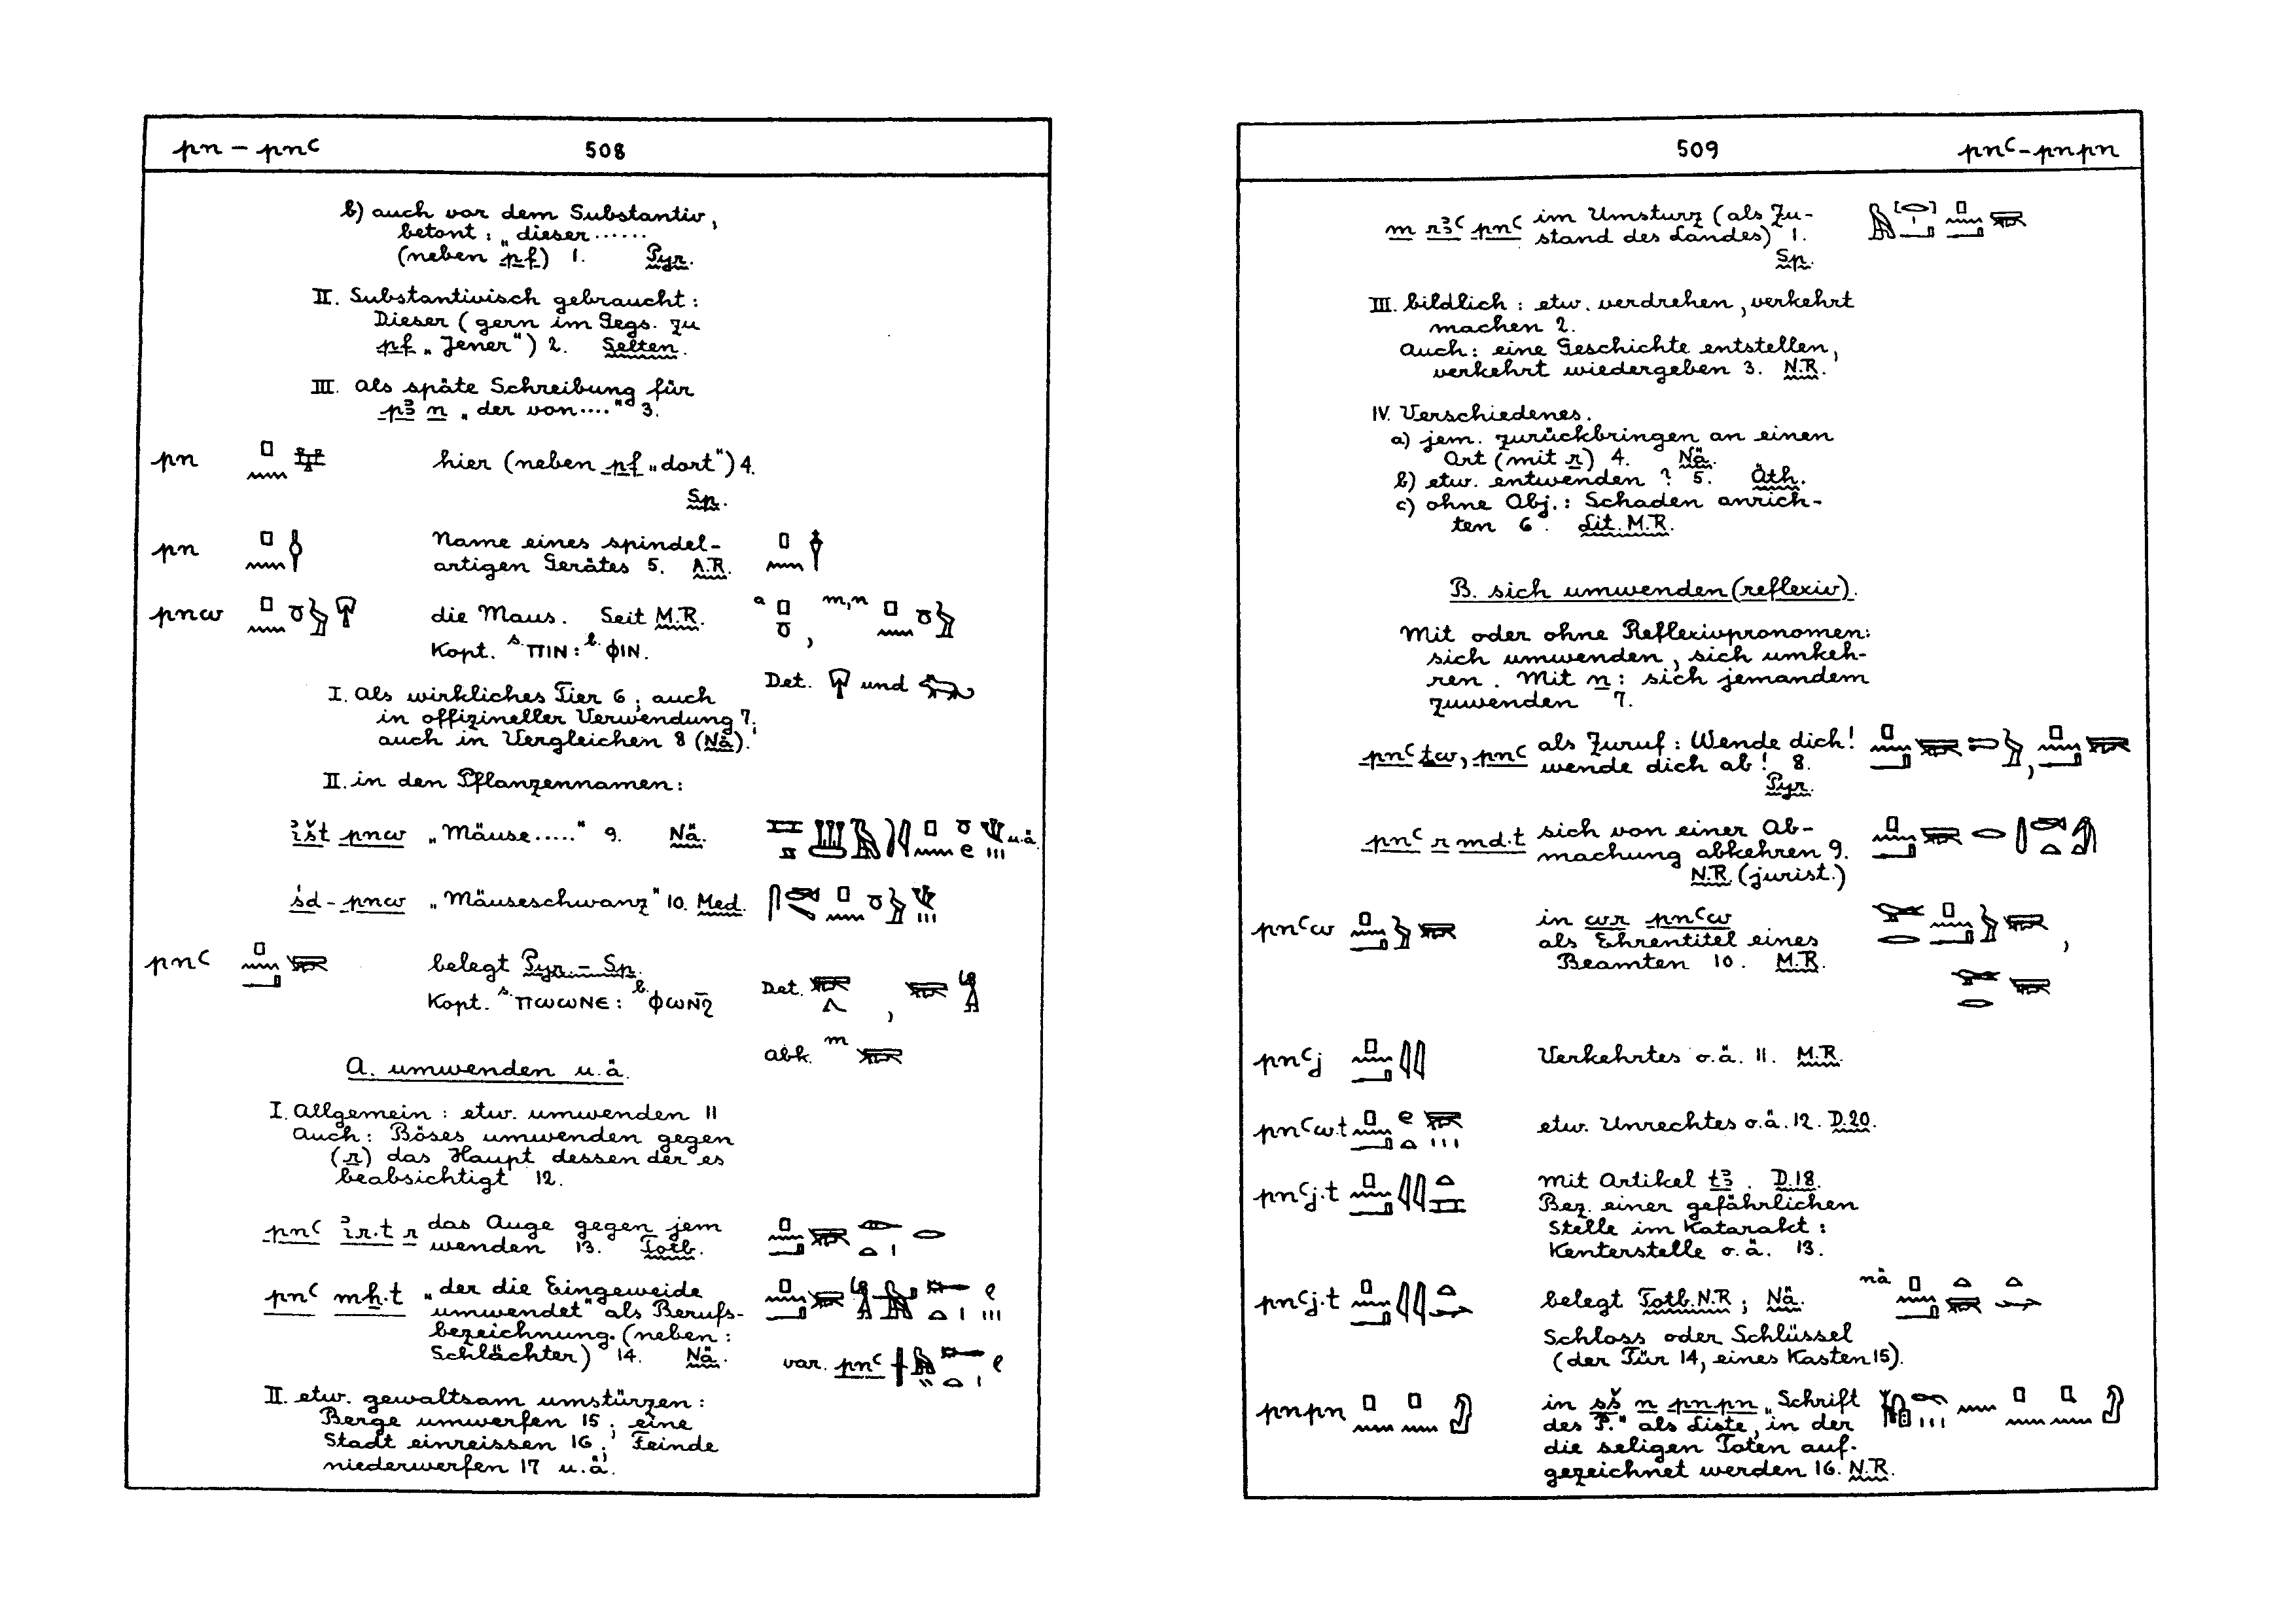 pn – pnꜥ 508
b) auch vor dem Substantiv,
betont: „dieser ......
(neben pf) 1. Pyr.
II. Substantivisch gebraucht:
Dieser (gern im Gegs. zu
pf „Jener“) 2. Selten.
III. als späte Schreibung für
pꜣ n „der von....“ 3.
pn hier (neben pf „dort“) 4.
Sp.
pn Name eines spindel-
artigen Gerätes 5. A.R.
pnw die Maus. Seit M.R. a , m,n
Kopt. s. ⲡⲓⲛ: b. ⲫⲓⲛ.
Det. und
I. als wirkliches Tier 6; auch
in offizineller Verwendung 7;
auch in Vergleichen 8 (Nä).
II. in den Pflanzennamen:
ꞽšt pnw „Mäuse.....“ 9. Nä. u.ä.
śd-pnw „Mäuseschwanz“ 10. Med.
pnꜥ belegt Pyr. – Sp.
Kopt. s. ⲡⲱⲱⲛⲉ: b. ⲫⲱⲛϩ Det. ,
abk. m
A. umwenden u.ä.
I. allgemein: etw. umwenden 11
auch: Böses umwenden gegen
(r) das Haupt dessen der es
beabsichtigt 12.
pnꜥ ꞽr.t r das Auge gegen jem
wenden 13. Totb.
pnꜥ mẖ.t „der die Eingeweide
umwendet“ als Berufs-
bezeichnung. (neben:
Schlächter) 14. Nä. var. pnꜥ
II. etw. gewaltsam umstürzen:
Berge umwerfen 15; eine
Stadt einreissen 16; Feinde
niederwerfen 17 u.ä.
509 pnꜥ–pnpn
m rꜣꜥ pnꜥ im Umsturz (als Zu-
stand des Landes) 1.
Sp.
III. bildlich: etw. verdrehen, verkehrt
machen 2.
Auch: eine Geschichte entstellen,
verkehrt wiedergeben 3. N.R.
IV. Verschiedenes.
a) jem. zurückbringen an einen
Ort (mit r) 4. Nä.
b) etw. entwenden? 5. Äth.
c) ohne Obj.: Schaden anrich-
ten 6. Lit. M.R.
B. sich umwenden (reflexiv).
Mit oder ohne Reflexivpronomen:
sich umwenden, sich umkeh-
ren. Mit n: sich jemandem
zuwenden 7.
pnꜥ ṯw, pnꜥ als Zuruf: Wende dich! ,
wende dich ab! 8.
Pyr.
pnꜥ r md.t sich von einer Ab-
machung abkehren 9.
N.R. (jurist.)
pnꜥw in wr pnꜥw
als Ehrentitel eines ,
Beamten 10. M.R.
pnꜥj Verkehrtes o.ä. 11. M.R.
pnꜥw.t etw. Unrechtes o.ä. 12. D.20.
pnꜥj.t mit Artikel tꜣ. D.18.
Bez. einer gefährlichen
Stelle im Katarakt:
Kenterstelle o.ä. 13.
pnꜥj.t belegt Totb.N.R; Nä. nä
Schloss oder Schlüssel
(der Tür 14, eines Kasten 15).
pnpn in sš n pnpn „Schrift
des P.“ als Liste, in der
die seligen Toten auf-
gezeichnet werden 16. N.R.